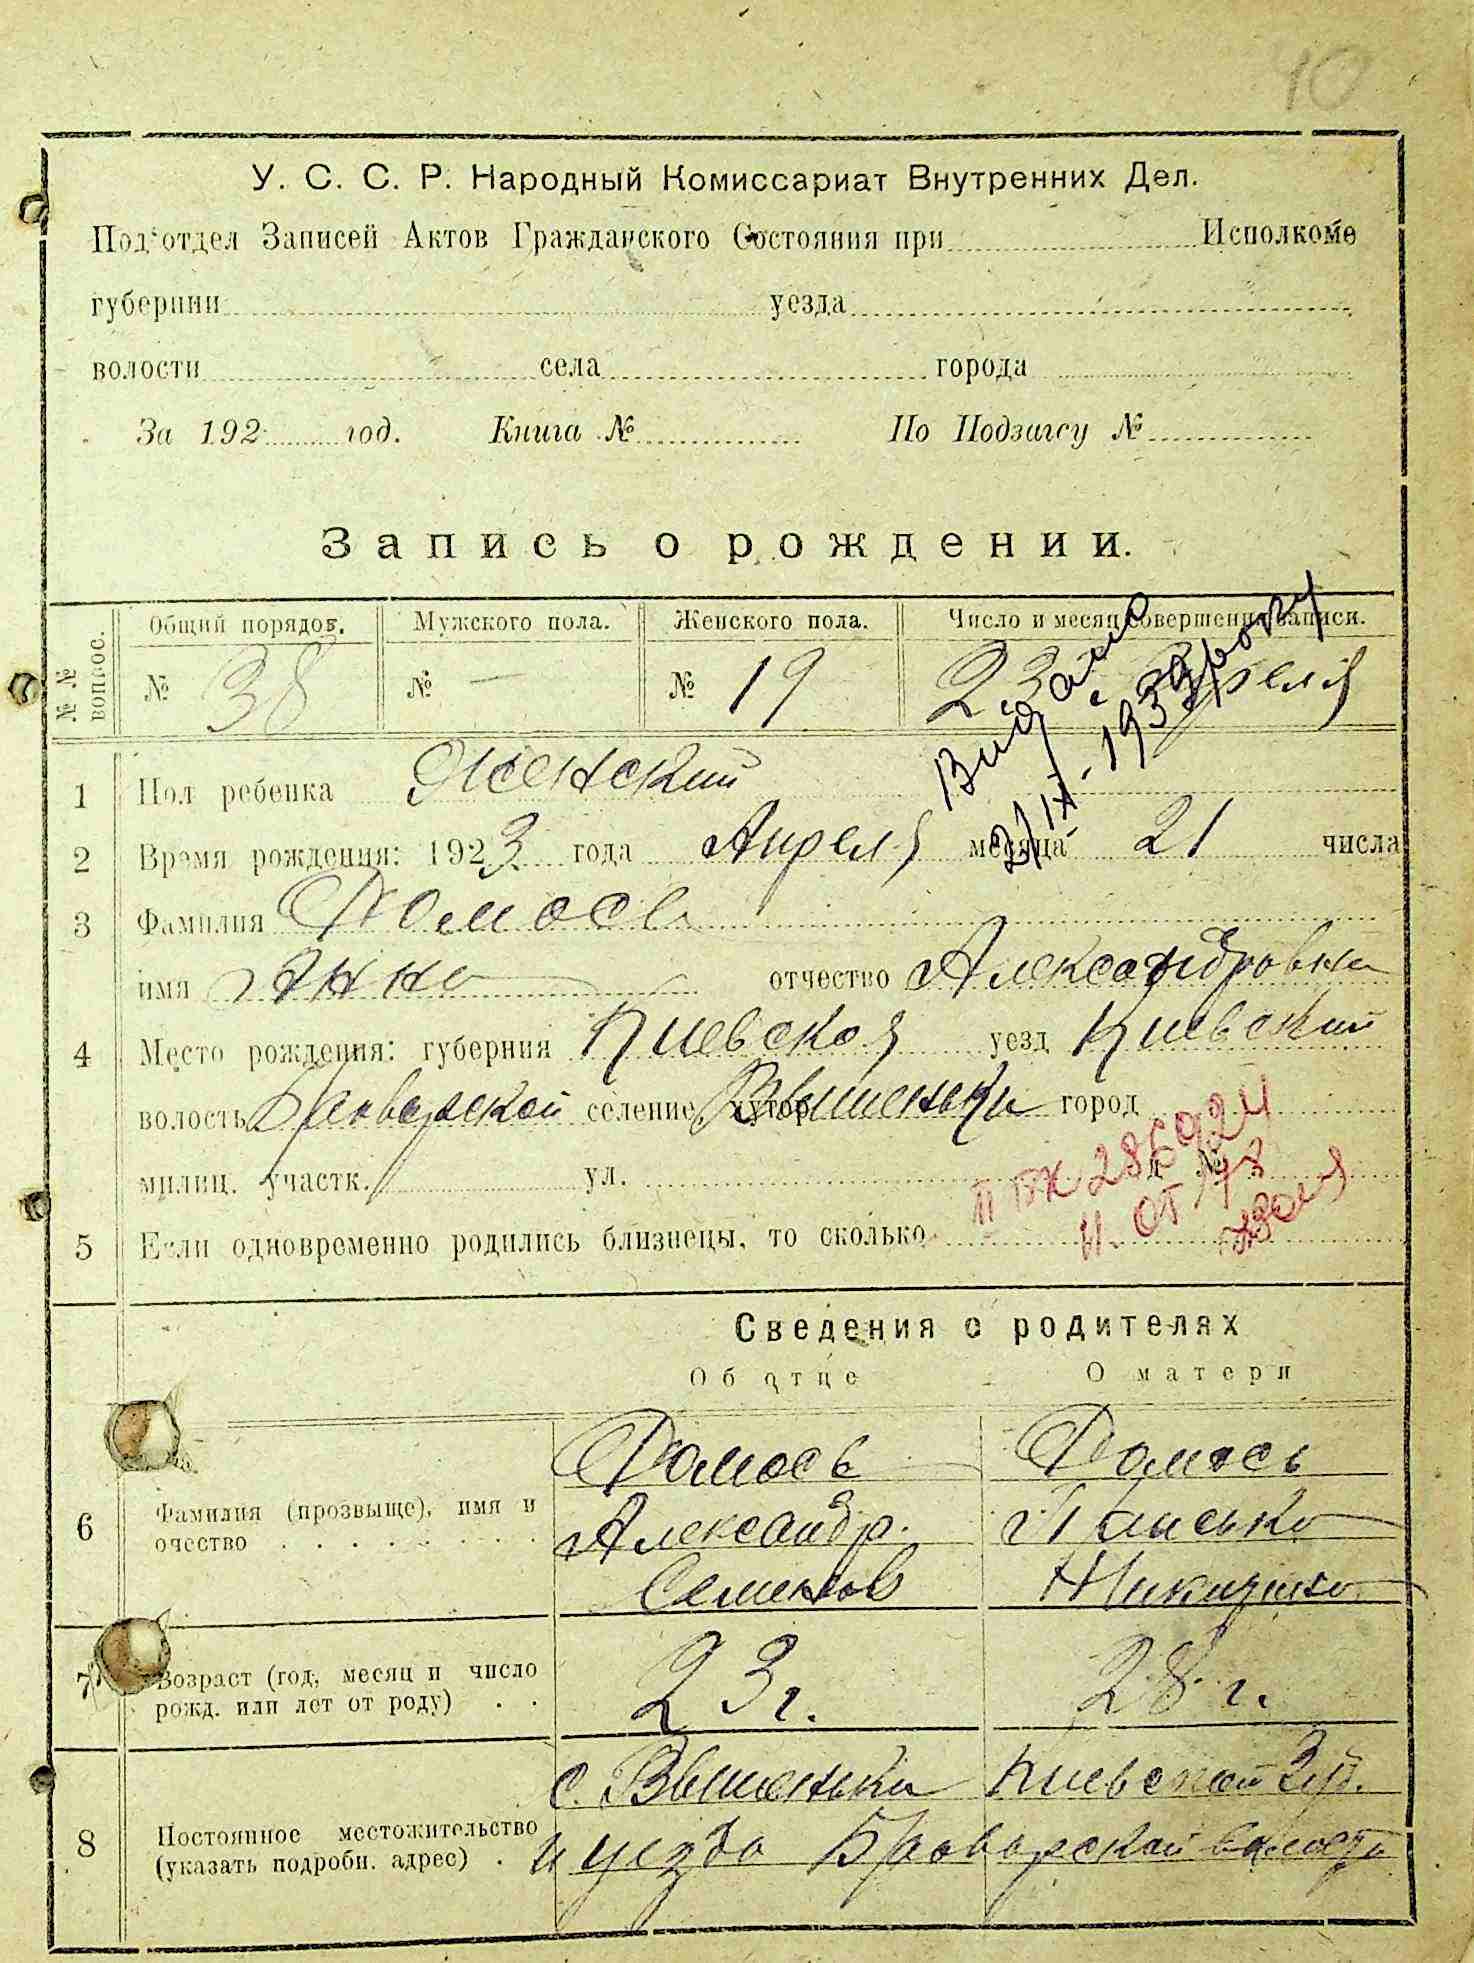 40
У. С. С. Р. Народный Комиссариат Внутренних Дел.
Подотдел Записей Актов Гражданского Состояния при Исполкоме
губернии уезда
волости села города
За 192 год. Книга № По Подзагсу №
Запись о рождении.
№ № вопрос. Общий порядов. Мужского пола. Женского пола. Число и месяц совершения записи.
№ 38 № — № 19 23 Апреля
Видано
21/IX. 1933 року
1 Пол ребенка Женский
2 Время рождения: 1923 года Апреля месяца 21 числа
3 Фамилия Ромось
имя Анна отчество Александровна
4 Место рождения: губерния Киевская уезд Киевский
волость Броварской селение, хутор Вышеньки город
милиц. участк. ул. д №
5 Если одновременно родились близнецы, то сколько
Сведения о родителях
Об отце О матери
6 Фамилия (прозвыще), имя и очество
Ромось Ромось
Александр.
Семенов
7 Возраст (год, месяц и число рожд. или лет от роду)
23 г. 28 г.
8 Постоянное местожительство (указать подробн. адрес)
с. Вышеньки Киевской Губ.
и уезда Броварской волости